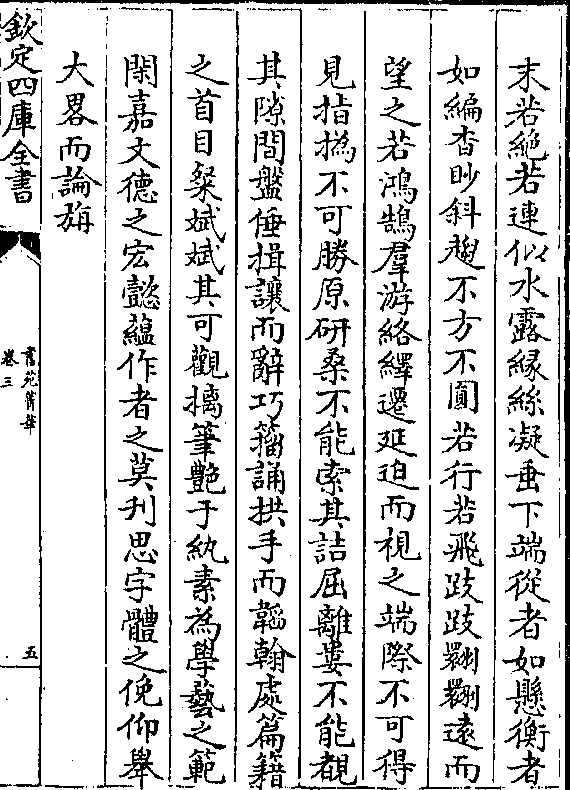 末若絶若連似水露縁絲凝垂下端從者如懸衡者
如編杳眇斜趨不方不圓若行若飛跂跂翾翾遠而
望之若鴻鵠羣游絡繹遷延迫而視之端際不可得
見指撝不可勝原研桑不能索其詰屈離婁不能覩
其隙間盤倕揖讓而辭巧籀誦拱手而韜翰處篇籍
之首目粲斌斌其可觀摛筆艶于紈素為學藝之範
閑嘉文德之宏懿蘊作者之莫刋思字體之俛仰舉
大畧而論旃
欽定四庫全書
書苑菁華
卷三
五